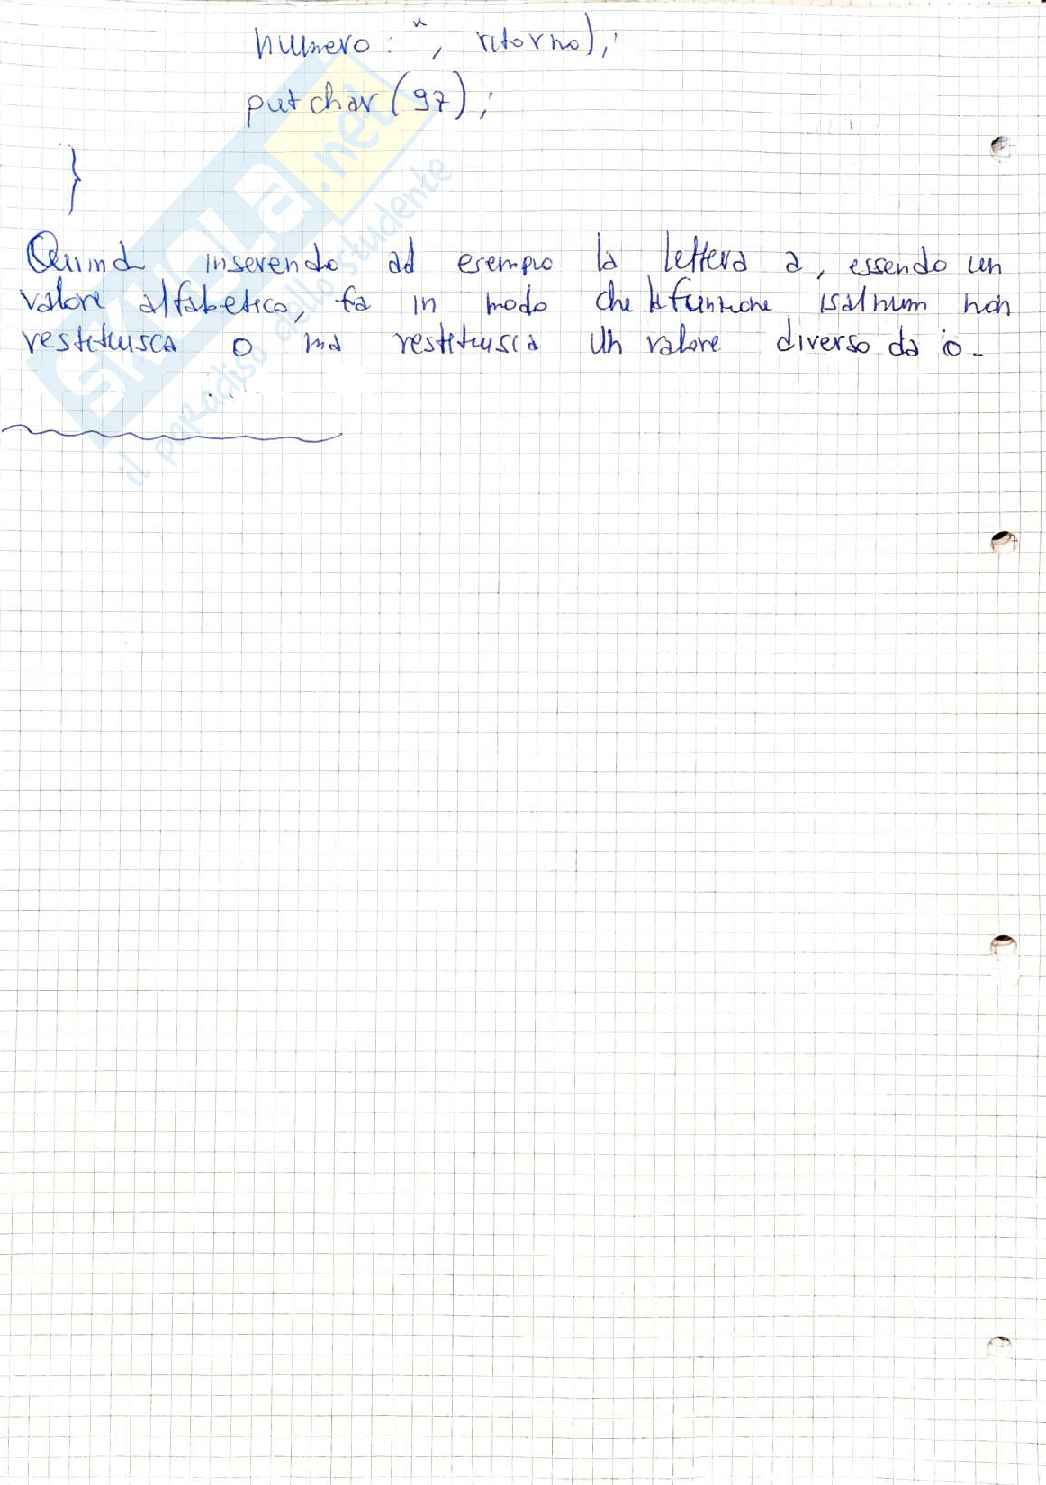 numero : ", ritorno);
putchar (97);
}
Quindi inserendo ad esempio la lettera a, essendo un
valore alfabetico, fa in modo che la funzione isalnum non
restituisca 0 ma restituisca un valore diverso da 0.
SKUOLA.net
il paradiso dello studente